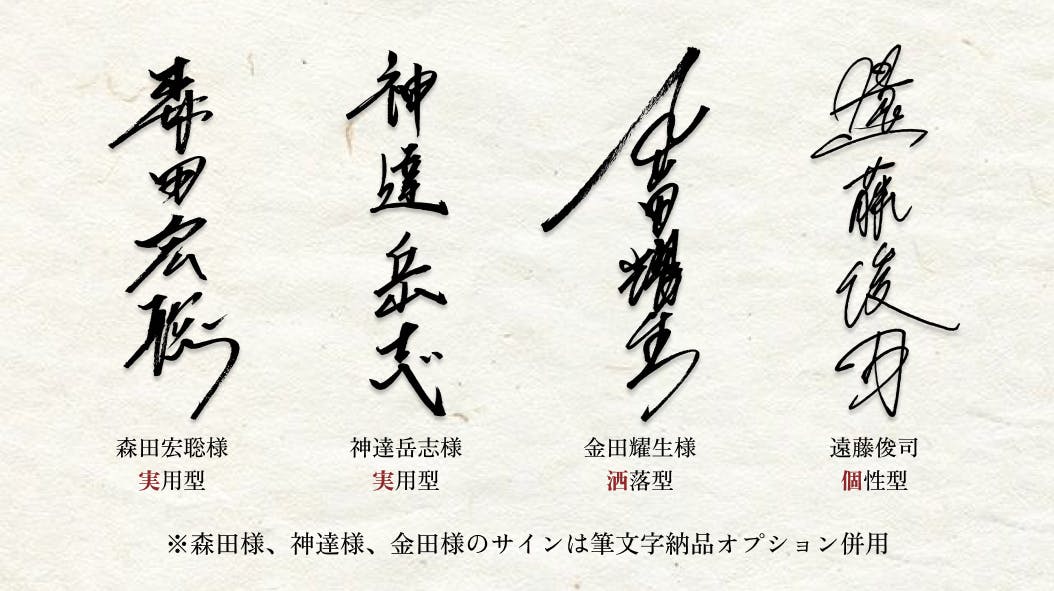 森田宏聡
神達岳志
金田耀生
遠藤俊司
森田宏聡様
実用型
神達岳志様
実用型
金田耀生様
洒落型
遠藤俊司
個性型
※森田様、神達様、金田様のサインは筆文字納品オプション併用